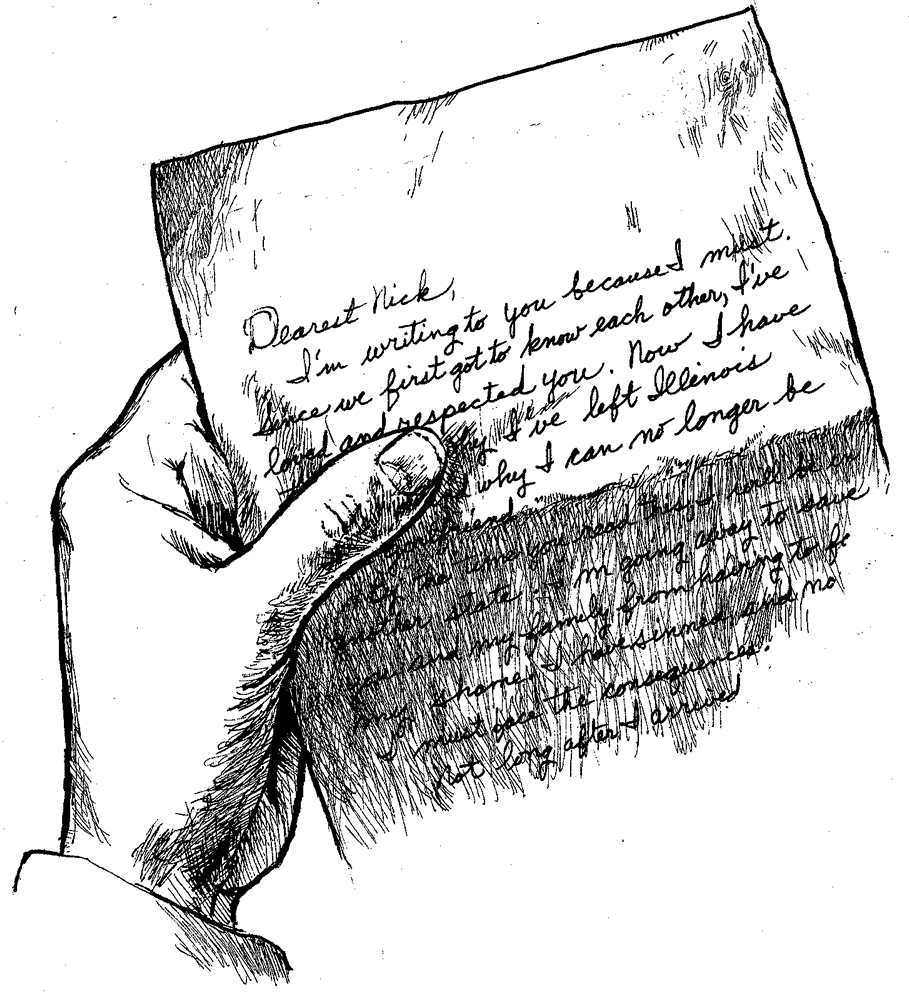 Dearest Nick,
I'm writing to you because I must.
Since we first got to know each other, I've
loved and respected you. Now I have
why I've left Illinois
why I can no longer be
girlfriend
By the time you read this, I will be in
another state. I'm going away to save
you and my family from having to be
my shame. I have sinned, and no
I must face the consequences.
Not long after I arrived